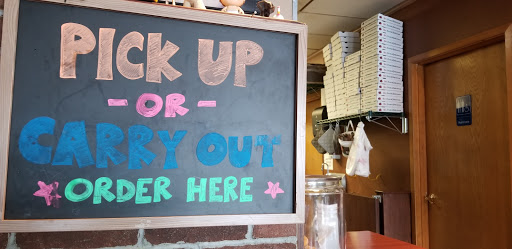 PICK UP
- OR -
CARRY OUT
ORDER HERE